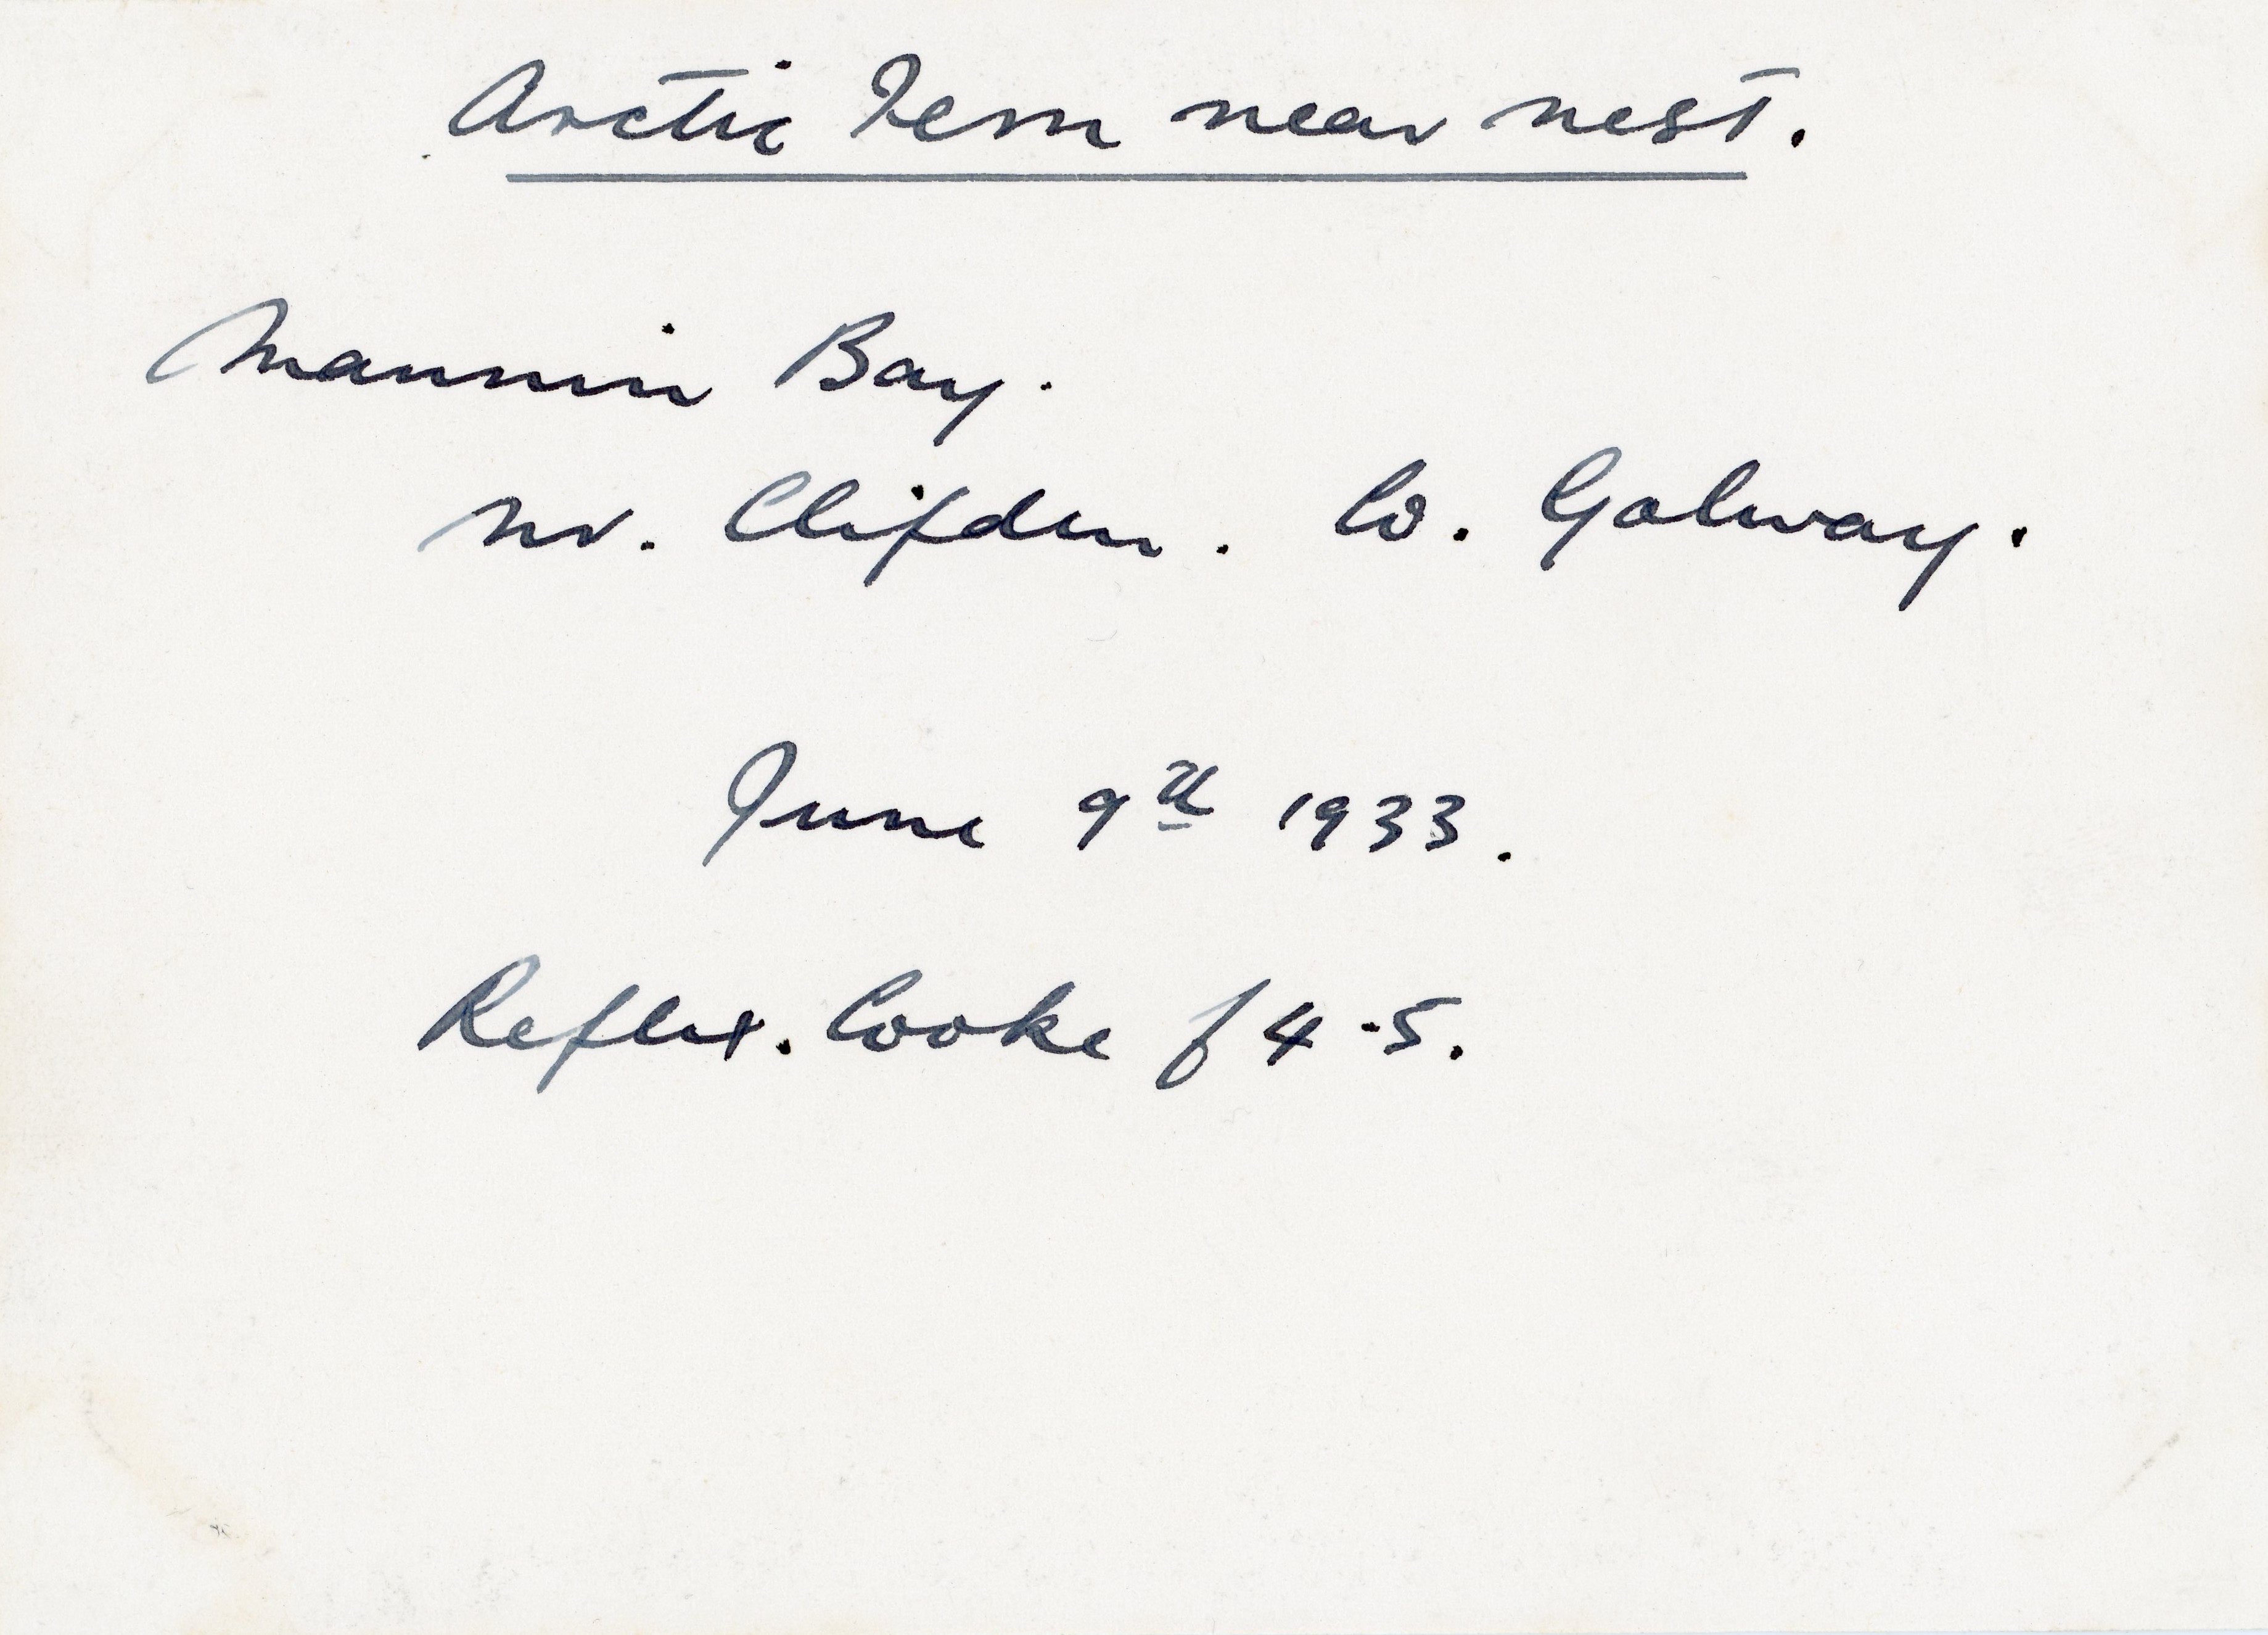 Arctic Tern near nest.
Mannin Bay.
nr. Clifden. Co. Galway.
June 9th 1933.
Reflex. Cooke f 4.5.